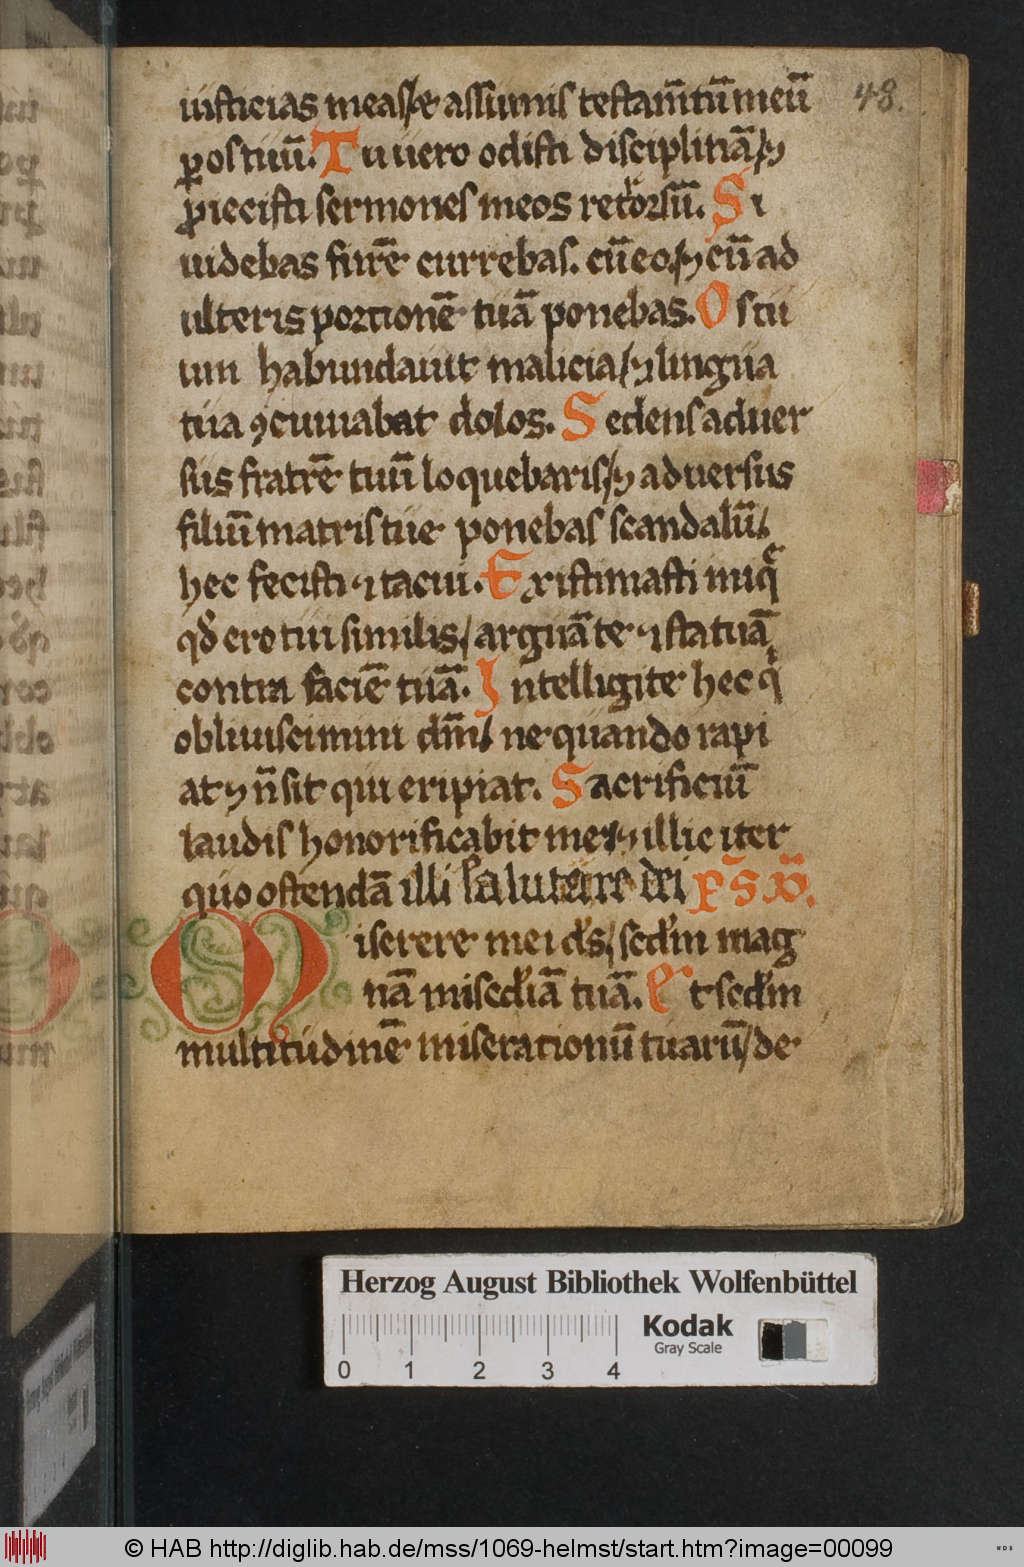 48.
iusticias meas/ et assumis testam̄tū meū
ꝑ os tuū. Tu uero odisti disciplinā/ ⁊
ꝓiecisti sermones meos retrorsū. Si
uidebas furē currebas. cū eo/ ⁊ cū ad
ulteris portionē tuā ponebas. Os tu
um habundauit malicia/ ⁊ lingua
tua ꝯcinnabat dolos. Sedens aduer
sus fratrē tuū loquebaris/ ⁊ aduersus
filiū matris tue ponebas scandalū/
hec fecisti ⁊ tacui. Existimasti iniq̄
qd̓ ero tui similis/ arguā te ⁊ statuā
contra faciē tuā. Intelligite hec qͥ
obliuiscimini dm̄/ ne quando rapi
at ⁊ n̄ sit qui eripiat. Sacrificiū
laudis honorificabit me/ ⁊ illic iter
quo ostendā illi salutare dei p̄s
Miserere mei ds̄/ scd̓m mag
nā misc̓diā tuā. Et scd̓m
multitudinē miserationū tuarū/ de
Herzog August Bibliothek Wolfenbüttel
Kodak
Gray Scale
0 1 2 3 4
© HAB http://diglib.hab.de/mss/1069-helmst/start.htm?image=00099